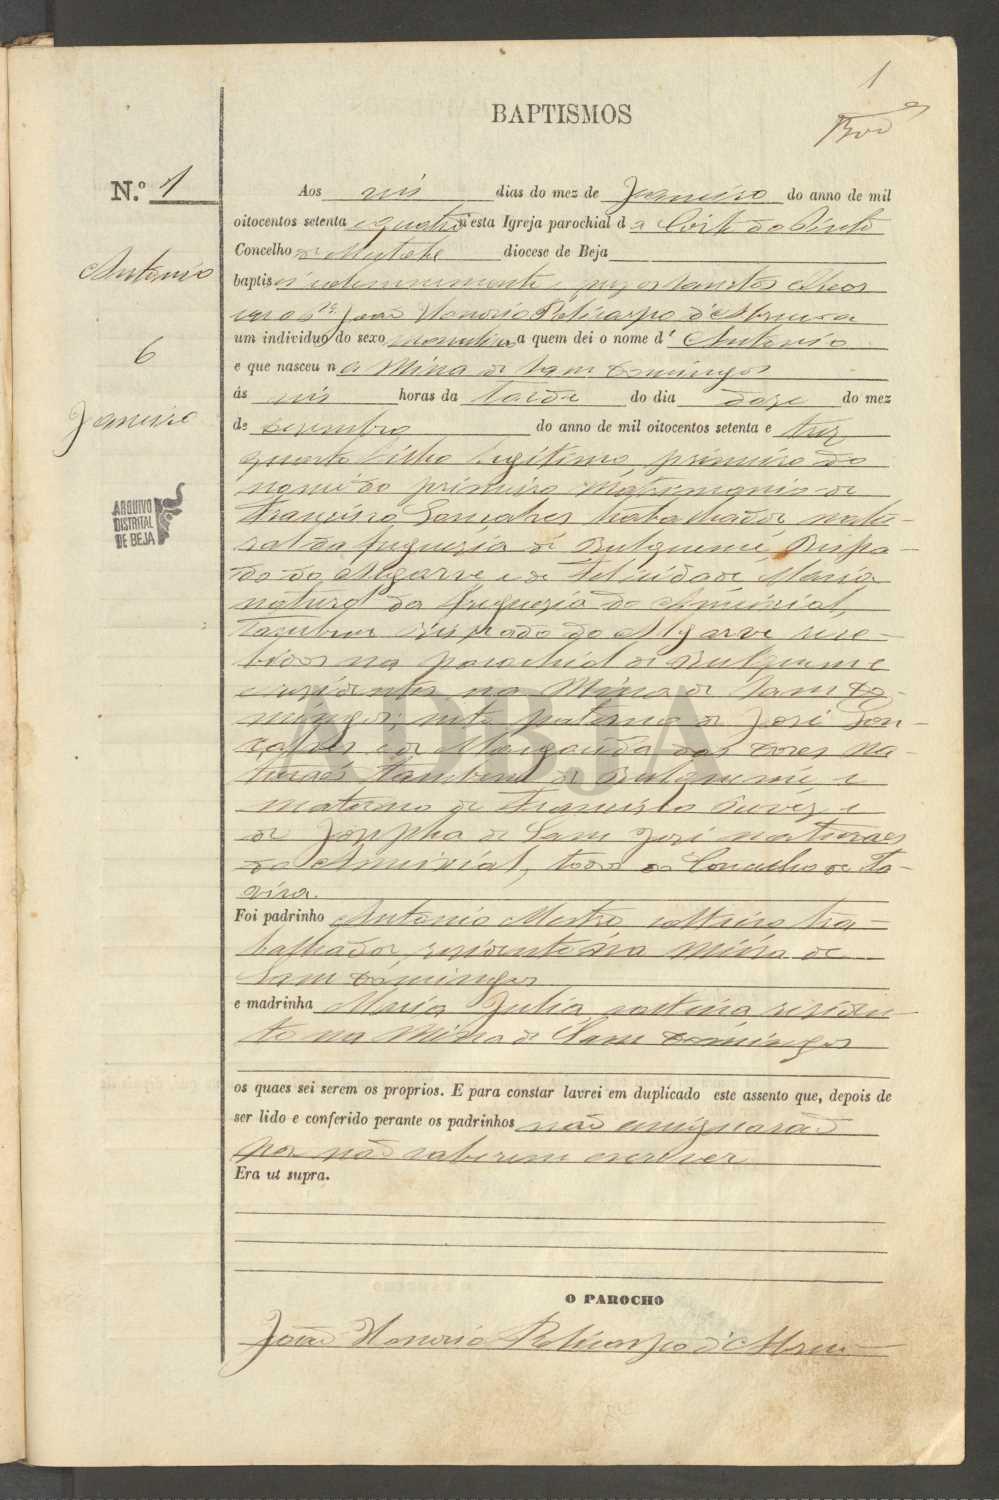 1
BAPTISMOS
N.º 1
Antonio
6
Janeiro
ARQUIVO
DISTRITAL
DE BEJA
Aos seis dias do mez de Janeiro do anno de mil
oitocentos setenta e quatro n'esta Igreja parochial d a Corte do Pinto
Concelho de Mertola diocese de Beja
baptisei solemnemente e puz os Santos Oleos
João Honorio Policarpo d'Abreu a
um individuo do sexo masculino a quem dei o nome d' Antonio
e que nasceu n a Mina de Sam Domingos
ás seis horas da tarde do dia doze do mez
de dezembro do anno de mil oitocentos setenta e trez
quarto filho legitimo, primeiro do
nome do primeiro matrimonio de
Francisco Gonçalves, trabalhador natu-
ral da freguezia de Bulgueme Bispa-
do do Algarve e de Felicidade Maria
natural da freguezia do Ameixial,
tambem Bispado do Algarve rece-
bidos na parochial de Bulgueme
e residentes na Mina de Sam Do-
mingos, neto paterno de José Gon-
çalves e de Margarida das Dores na-
turaes tambem de Bulgueme e
materno de Francisco e
de Josepha de Sam José naturaes
do Ameixial, todos do Concelho de Ta-
vira.
Foi padrinho Antonio Mestre solteiro tra-
balhador, residente na Mina de
Sam Domingos
e madrinha Maria Julia, solteira residen-
te na Mina de Sam Domingos
os quaes sei serem os proprios. E para constar lavrei em duplicado este assento que, depois de
ser lido e conferido perante os padrinhos não assignarão
por não saberem escrever
Era ut supra.
O PAROCHO
João Honorio Policarpo d'Abreu
ADBJA